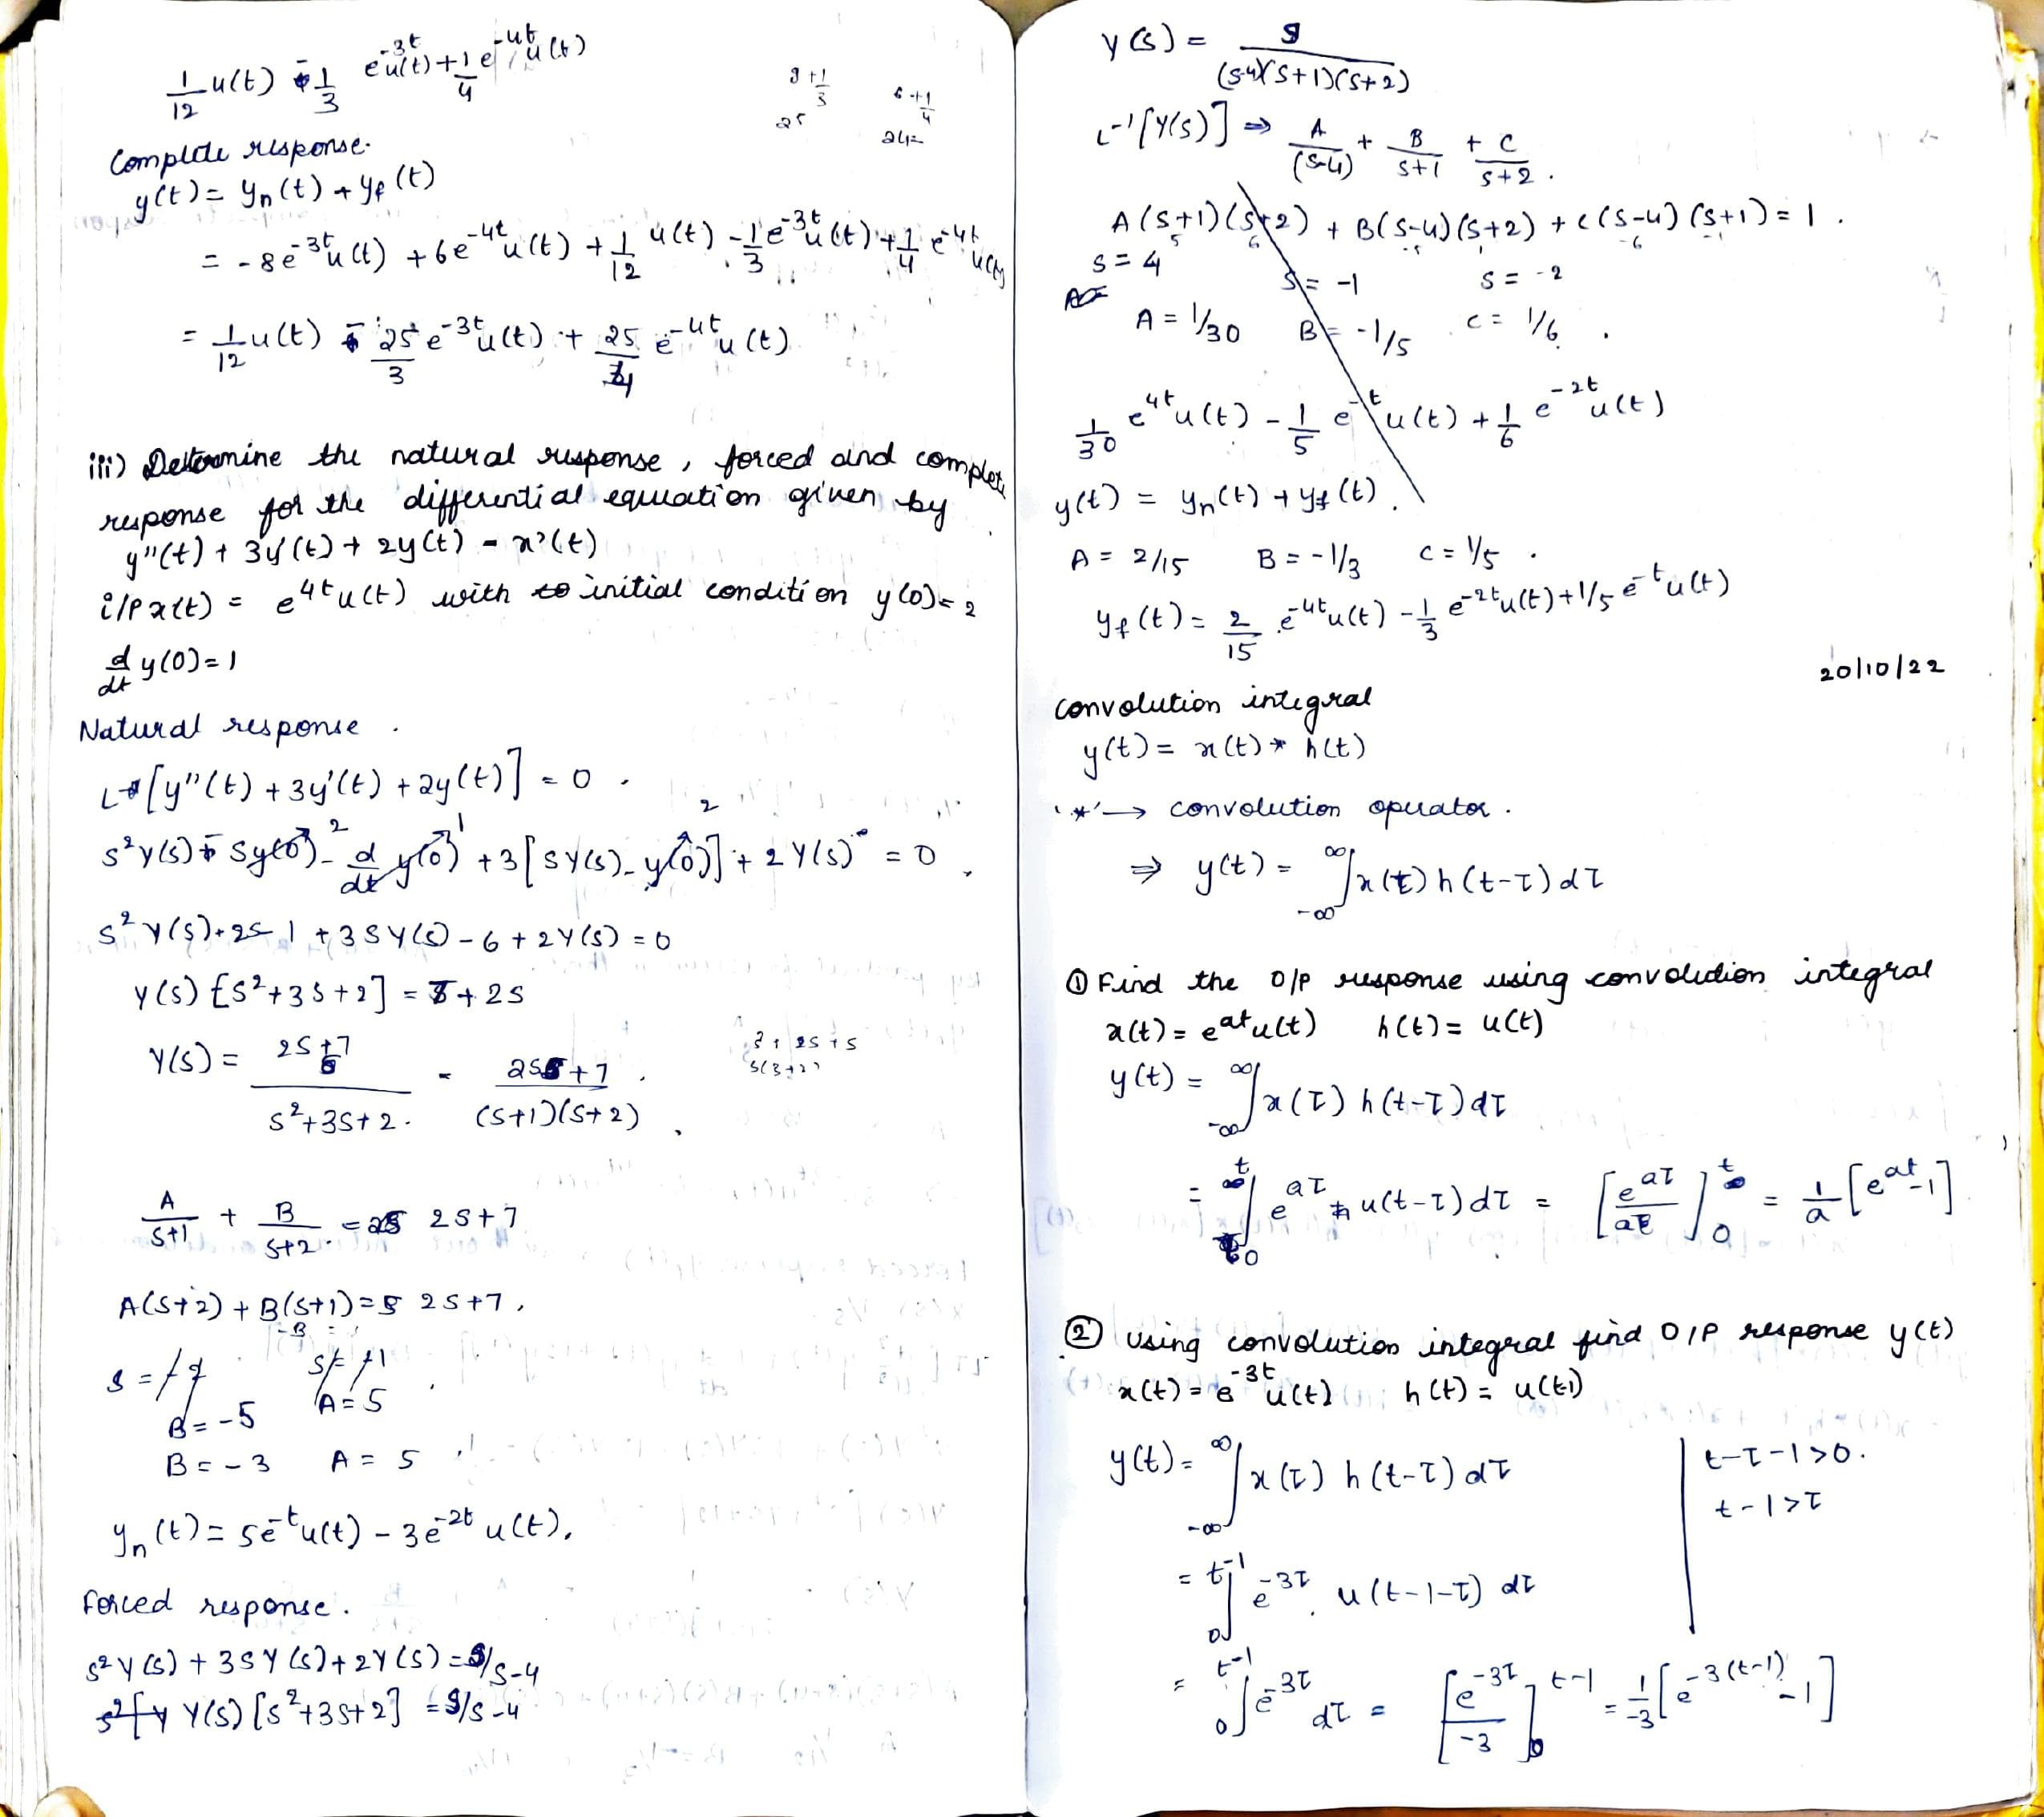 1/12 u(t) - 1/3 e^-3t u(t) + 1/4 e^-4t u(t)
Complete response.
y(t) = yn(t) + yf(t)
= -8e^-3t u(t) + 6e^-4t u(t) + 1/12 u(t) - 1/3 e^-3t u(t) + 1/4 e^-4t u(t)
= 1/12 u(t) - 25/3 e^-3t u(t) + 25/4 e^-4t u(t)
iii) Determine the natural response, forced and complete
response for the differential equation given by
y''(t) + 3y'(t) + 2y(t) = x'(t)
i/p x(t) = e^4t u(t) with to initial condition y(0) = 2
d/dt y(0) = 1
Natural response.
L[y''(t) + 3y'(t) + 2y(t)] = 0.
s²Y(s) - sy(0) - d/dt y(0) + 3[sY(s) - y(0)] + 2Y(s) = 0
s²Y(s) + 2s 1 + 3sY(s) - 6 + 2Y(s) = 0
Y(s) [s² + 3s + 2] = 7 + 2s
Y(s) = 2s+7 / s²+3s+2. = 2s+7 / (s+1)(s+2).
A/s+1 + B/s+2 = 2s+7
A(s+2) + B(s+1) = 2s+7,
B = -5 A = 5
B = -3 A = 5
yn(t) = 5e^-t u(t) - 3e^-2t u(t),
Forced response.
s²Y(s) + 3sY(s) + 2Y(s) = s/s-4
Y(s) [s²+3s+2] = s/s-4
Y(s) = s / (s-4)(s+1)(s+2)
L^-1[Y(s)] ⇒ A/(s-4) + B/s+1 + C/s+2.
A(s+1)(s+2) + B(s-4)(s+2) + C(s-4)(s+1) = 1.
s = 4 s = -1 s = -2
A = 1/30 B = -1/5 C = 1/6.
1/30 e^4t u(t) - 1/5 e^-t u(t) + 1/6 e^-2t u(t)
y(t) = yn(t) + yf(t).
A = 2/15 B = -1/3 C = 1/5.
yf(t) = 2/15 e^-4t u(t) - 1/3 e^-2t u(t) + 1/5 e^-t u(t)
20/10/22
convolution integral
y(t) = x(t) * h(t)
'*' → convolution operator.
⇒ y(t) = ∞∫-∞ x(τ) h(t-τ) dτ
① Find the o/p response using convolution integral
x(t) = e^at u(t) h(t) = u(t)
y(t) = ∞∫-∞ x(τ) h(t-τ) dτ
= t∫0 e^aτ u(t-τ) dτ = [e^aτ/a]t0 = 1/a [e^at - 1]
② Using convolution integral find O/P response y(t)
x(t) = e^-3t u(t) h(t) = u(t-1)
y(t) = ∞∫-∞ x(τ) h(t-τ) dτ
t-τ-1>0.
t-1>τ
= t-1∫0 e^-3τ. u(t-1-τ) dτ
= t-1∫0 e^-3τ dτ = [e^-3τ/-3]t-1 0 = 1/-3 [e^-3(t-1) - 1]